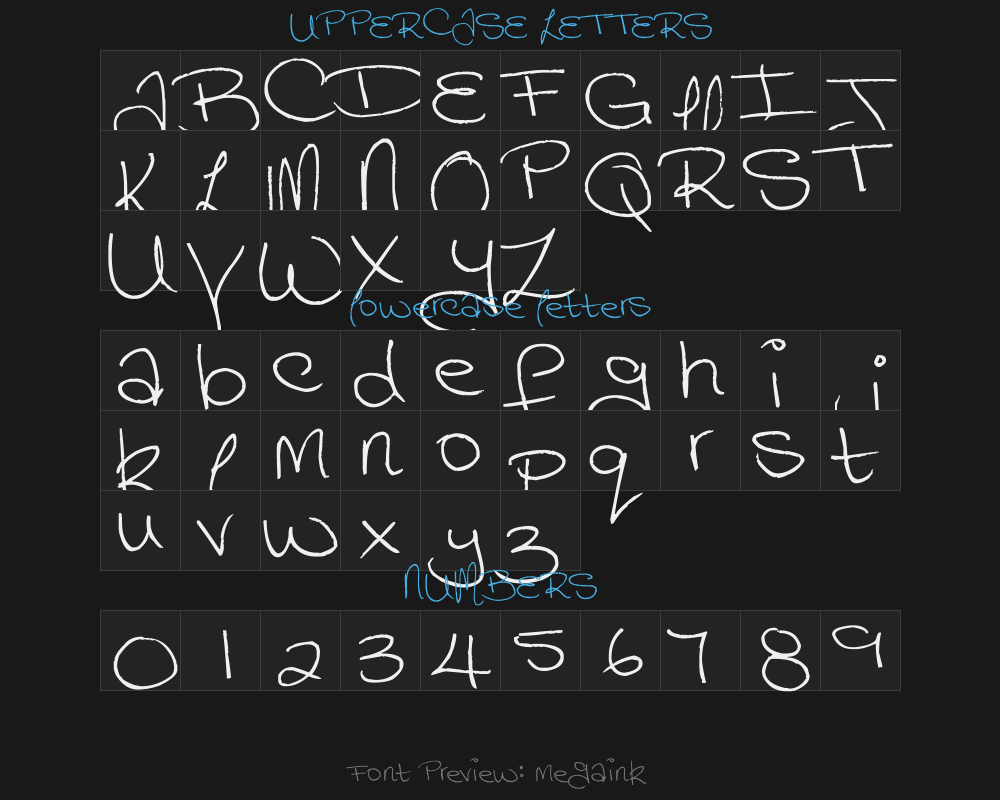 UPPERCASE LETTERS
A B C D E F G H I J
K L M N O P Q R S T
U V W X Y Z
lowercase letters
a b c d e f g h i j
k l m n o p q r s t
u v w x y z
NUMBERS
0 1 2 3 4 5 6 7 8 9
Font Preview: Megaink